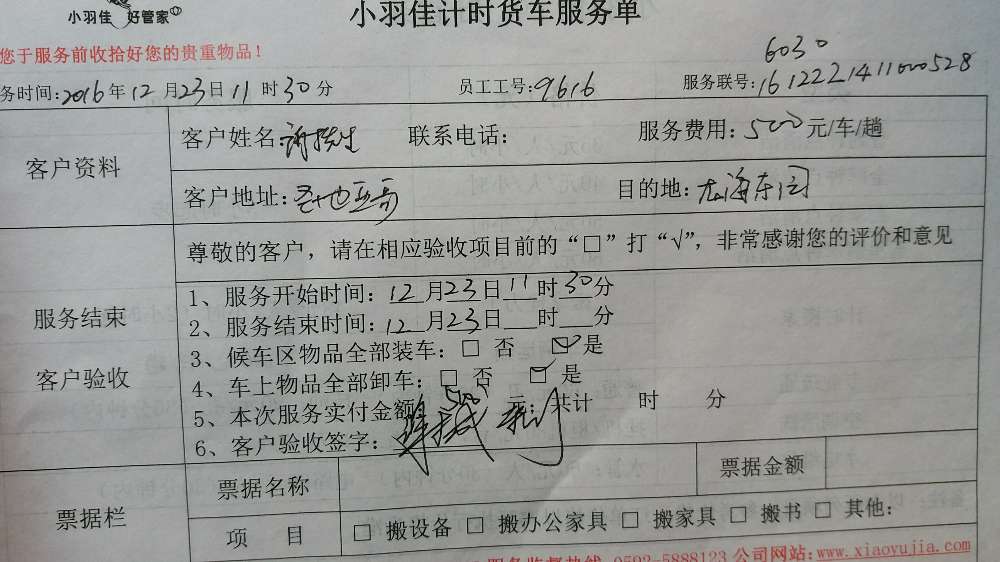 小羽佳 好管家
小羽佳计时货车服务单
您于服务前收拾好您的贵重物品！
6030
务时间：2016年12月23日11时30分 员工工号：9616 服务联号：161222141100528
客户资料
客户姓名： 联系电话： 服务费用：500元/车/趟
客户地址： 目的地：
尊敬的客户，请在相应验收项目前的“□”打“√”，非常感谢您的评价和意见
服务结束
客户验收
1、服务开始时间：12月23日11时30分
2、服务结束时间：12月23日 时 分
3、候车区物品全部装车：□ 否 ☑ 是
4、车上物品全部卸车：□ 否 ☑ 是
5、本次服务实付金额 500 元，共计 时 分
6、客户验收签字：
票据栏
票据名称 票据金额
项 目 □ 搬设备 □ 搬办公家具 □ 搬家具 □ 搬书 □ 其他：
服务监督热线 0592-5888123 公司网站：www.xiaoyujia.com